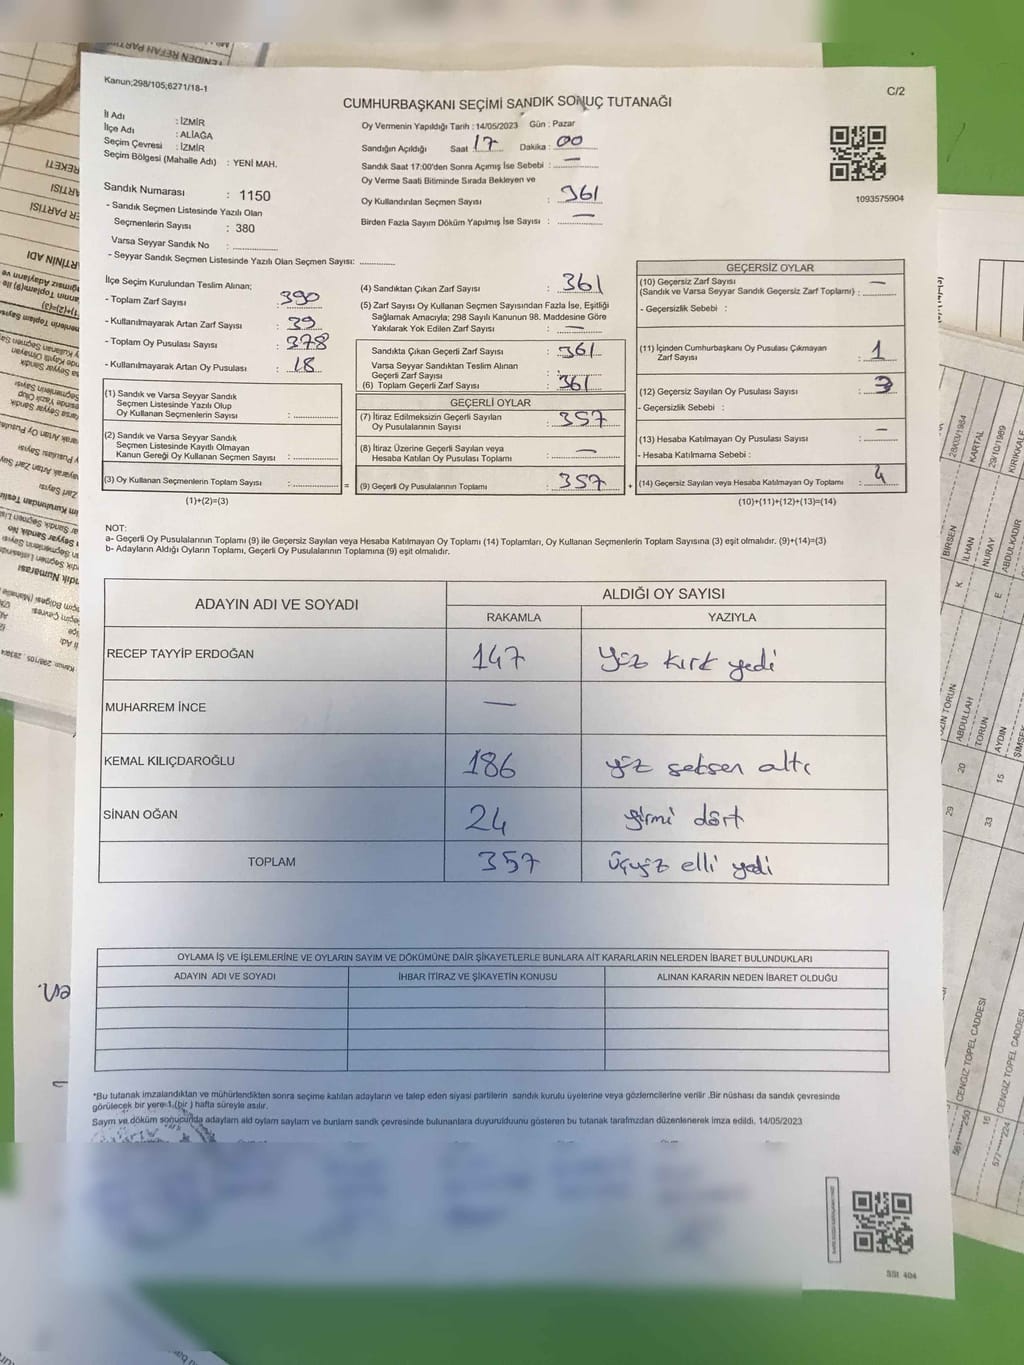 Kanun;298/105;6271/18-1
C/2
CUMHURBAŞKANI SEÇİMİ SANDIK SONUÇ TUTANAĞI
İl Adı : İZMİR
İlçe Adı : ALİAĞA
Seçim Çevresi : İZMİR
Seçim Bölgesi (Mahalle Adı) : YENİ MAH.
Sandık Numarası : 1150
- Sandık Seçim Listesinde Yazılı Olan
Seçmenlerin Sayısı : 380
Varsa Seyyar Sandık No :
- Seyyar Sandık Seçim Listesinde Yazılı Olan Seçmen Sayısı:
Oy Vermenin Yapıldığı Tarih : 14/05/2023 Gün : Pazar
Sandığın Açıldığı Saat 17 Dakika : 00
Sandık Saat 17:00'den Sonra Açımış İse Sebebi : —
Oy Verme Saati Bitiminde Sırada Bekleyen ve
Oy Kullandırılan Seçmen Sayısı : 361
Birden Fazla Sayım Döküm Yapılmış İse Sayısı : —
1093575904
İlçe Seçim Kurulundan Teslim Alınan;
- Toplam Zarf Sayısı : 390
- Kullanılmayarak Artan Zarf Sayısı : 39
- Toplam Oy Pusulası Sayısı : 378
- Kullanılmayarak Artan Oy Pusulası : 18
(1) Sandık ve Varsa Seyyar Sandık
Seçmen Listesinde Yazılı Olup
Oy Kullanan Seçmenlerin Sayısı :
(2) Sandık ve Varsa Seyyar Sandık
Seçmen Listesinde Kayıtlı Olmayan
Kanun Gereği Oy Kullanan Seçmen Sayısı :
(3) Oy Kullanan Seçmenlerin Toplam Sayısı :
(1)+(2)=(3)
=
(4) Sandıktan Çıkan Zarf Sayısı : 361
(5) Zarf Sayısı Oy Kullanan Seçmen Sayısından Fazla İse, Eşitliği
Sağlamak Amacıyla; 298 Sayılı Kanunun 98. Maddesine Göre
Yakılarak Yok Edilen Zarf Sayısı : —
Sandıkta Çıkan Geçerli Zarf Sayısı : 361
Varsa Seyyar Sandıktan Teslim Alınan
Geçerli Zarf Sayısı :
(6) Toplam Geçerli Zarf Sayısı : 361
GEÇERLİ OYLAR
(7) İtiraz Edilmeksizin Geçerli Sayılan
Oy Pusulalarının Sayısı : 357
(8) İtiraz Üzerine Geçerli Sayılan veya
Hesaba Katılan Oy Pusulası Toplamı : —
(9) Geçerli Oy Pusulalarının Toplamı : 357
+
GEÇERSİZ OYLAR
(10) Geçersiz Zarf Sayısı
(Sandık ve Varsa Seyyar Sandık Geçersiz Zarf Toplamı) : —
- Geçersizlik Sebebi :
(11) İçinden Cumhurbaşkanı Oy Pusulası Çıkmayan
Zarf Sayısı : 1
(12) Geçersiz Sayılan Oy Pusulası Sayısı : 3
- Geçersizlik Sebebi :
(13) Hesaba Katılmayan Oy Pusulası Sayısı : —
- Hesaba Katılmama Sebebi :
(14) Geçersiz Sayılan veya Hesaba Katılmayan Oy Toplamı : 4
(10)+(11)+(12)+(13)=(14)
NOT:
a- Geçerli Oy Pusulalarının Toplamı (9) ile Geçersiz Sayılan veya Hesaba Katılmayan Oy Toplamı (14) Toplamları, Oy Kullanan Seçmenlerin Toplam Sayısına (3) eşit olmalıdır. (9)+(14)=(3)
b- Adayların Aldığı Oyların Toplamı, Geçerli Oy Pusulalarının Toplamına (9) eşit olmalıdır.
ADAYIN ADI VE SOYADI
ALDIĞI OY SAYISI
RAKAMLA YAZIYLA
RECEP TAYYİP ERDOĞAN 147 yüz kırk yedi
MUHARREM İNCE —
KEMAL KILIÇDAROĞLU 186 yüz seksen altı
SİNAN OĞAN 24 yirmi dört
TOPLAM 357 üçyüz elli yedi
OYLAMA İŞ VE İŞLEMLERİNE VE OYLARIN SAYIM VE DÖKÜMÜNE DAİR ŞİKAYETLERLE BUNLARA AİT KARARLARIN NELERDEN İBARET BULUNDUKLARI
ADAYIN ADI VE SOYADI İHBAR İTİRAZ VE ŞİKAYETİN KONUSU ALINAN KARARIN NEDEN İBARET OLDUĞU
*Bu tutanak imzalandıktan ve mühürlendikten sonra seçime katılan adayların ve talep eden siyasi partilerin sandık kurulu üyelerine veya gözlemcilerine verilir .Bir nüshası da sandık çevresinde
görülecek bir yere 1 (bir ) hafta süreyle asılır.
Sayım ve döküm sonucunda adayların aldı oyların sayıların ve bunların sandık çevresinde bulunanlara duyurulduunu gösteren bu tutanak tarafımızdan düzenlenerek imza edildi. 14/05/2023
SSt 404
BİRSEN
28/03/1984
İLHAN
KARTAL
NURAY
29/10/1989
ABDULKADİR
KIRIKKALE
K
E
ABDULLAH
TORUN
AYDIN
29
20
33
15
CENGİZ TOPEL CADDESİ
CENGİZ TOPEL CADDESİ